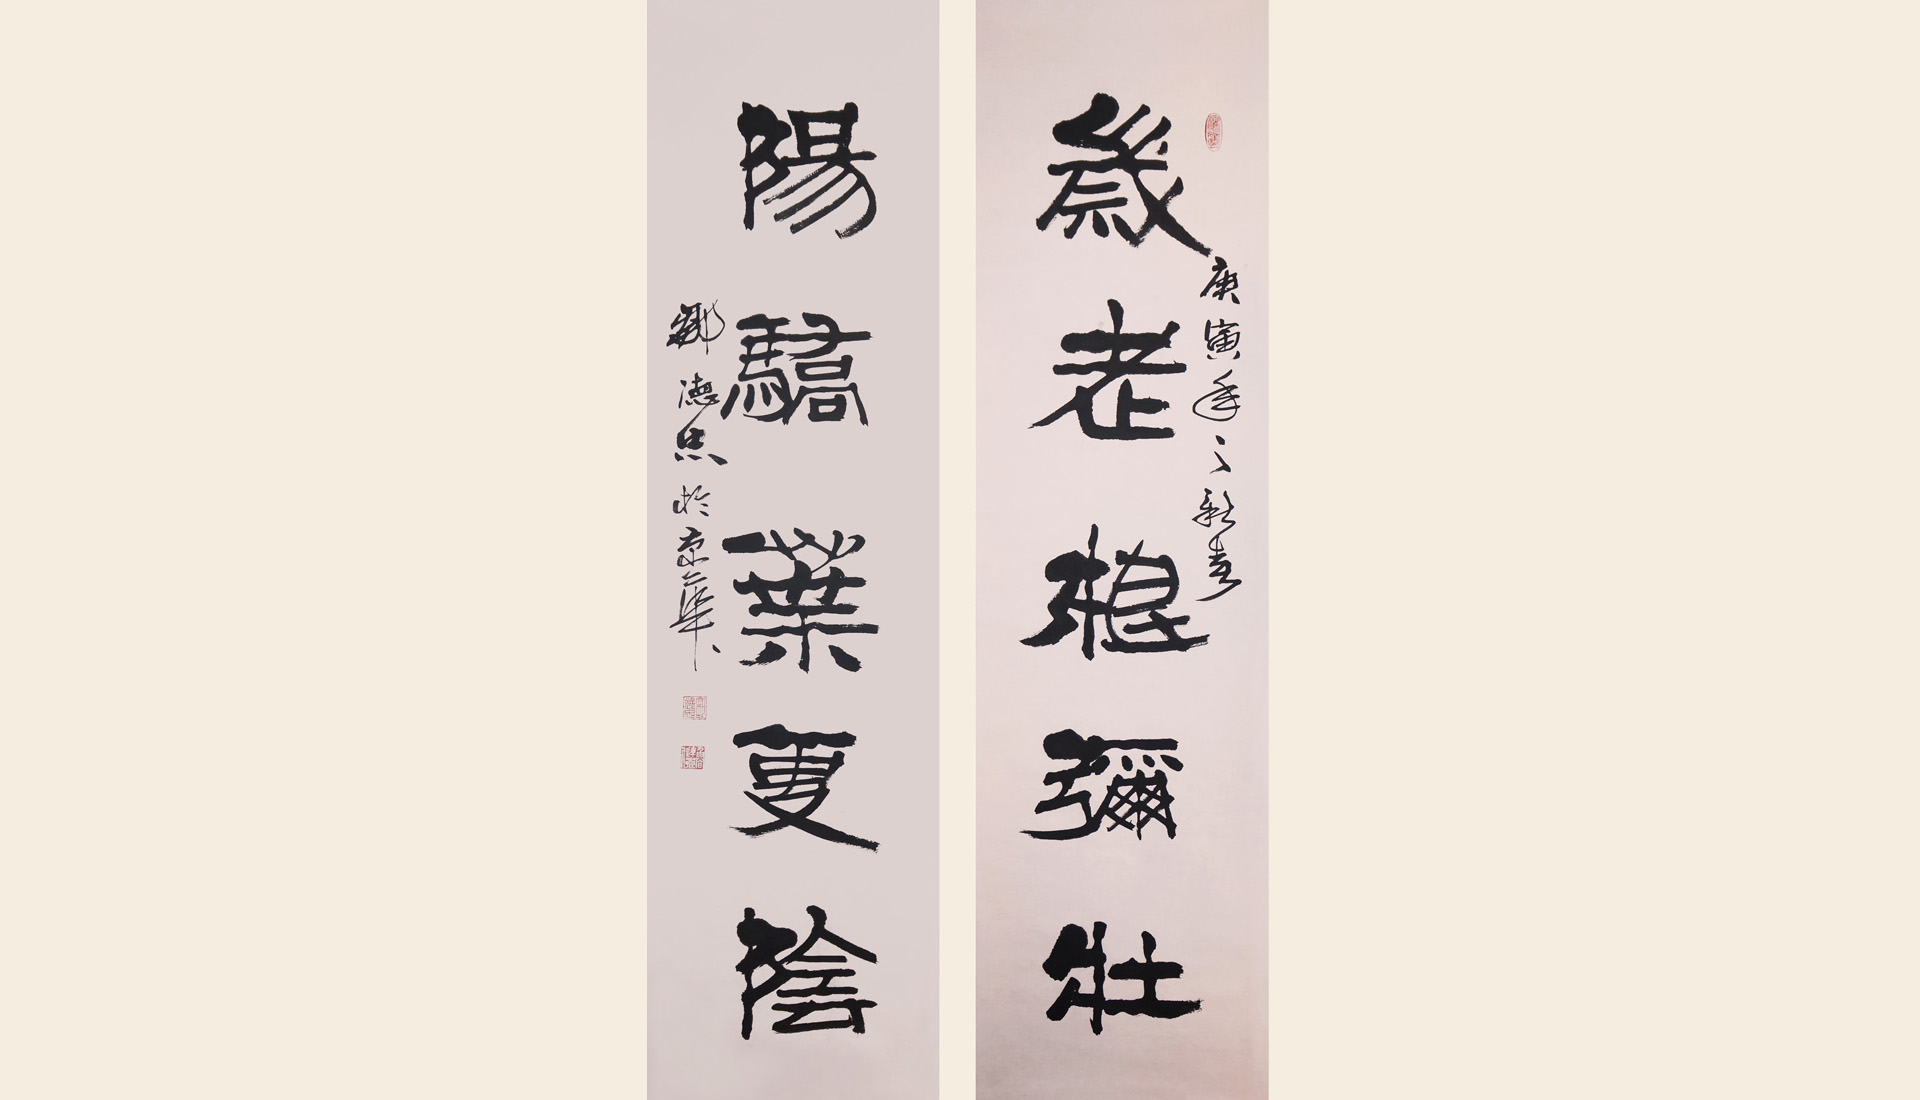 歲老根彌壯
庚寅年之新春
陽驕葉更陰
鄭德忠於京華